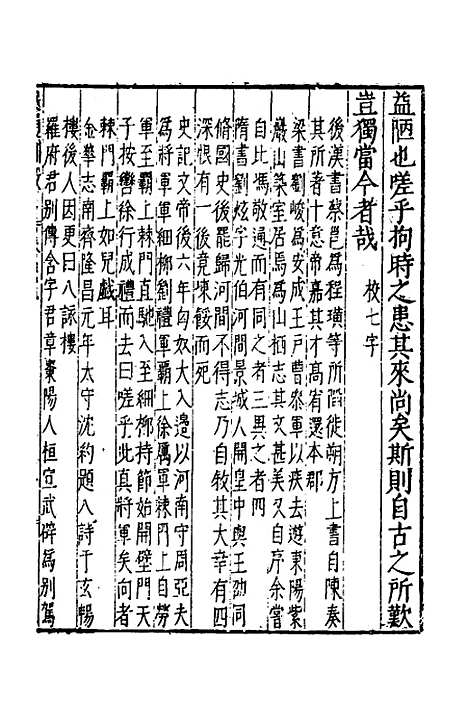 益陋也嗟乎拘時之患其來尚矣斯則自古之所歎
豈獨當今者哉 校七字
後漢書蔡邕爲程璜等所陷徙朔方上書自陳奏
其所者十意帝嘉其才高宥還本郡
梁書劉峻爲安成王戸曹叅軍以疾去遊東陽紫
巖山築室居焉爲山栖志其文甚美又自序余嘗
自比馮敬通而有同之者三異之者四
隋書劉炫字光伯河間景城人開皇中與王劭同
脩國史後罷歸河間不得志乃自敘其大幸有四
深恨有一後竟凍餒而死
史記文帝後六年匈奴大入邊以河南守周亞夫
爲將軍軍細柳劉禮軍霸上徐厲軍棘門上自勞
軍至霸上棘門直馳入至細柳持節始開壁門天
子按轡徐行成禮而去曰嗟乎此真將軍矣向者
棘門霸上如兒戲耳
金華志南齊隆昌元年太守沈約題八詩于玄暢
樓後人因更曰八詠樓
羅府君别傳含字君章棗陽人桓宣武辟爲别駕